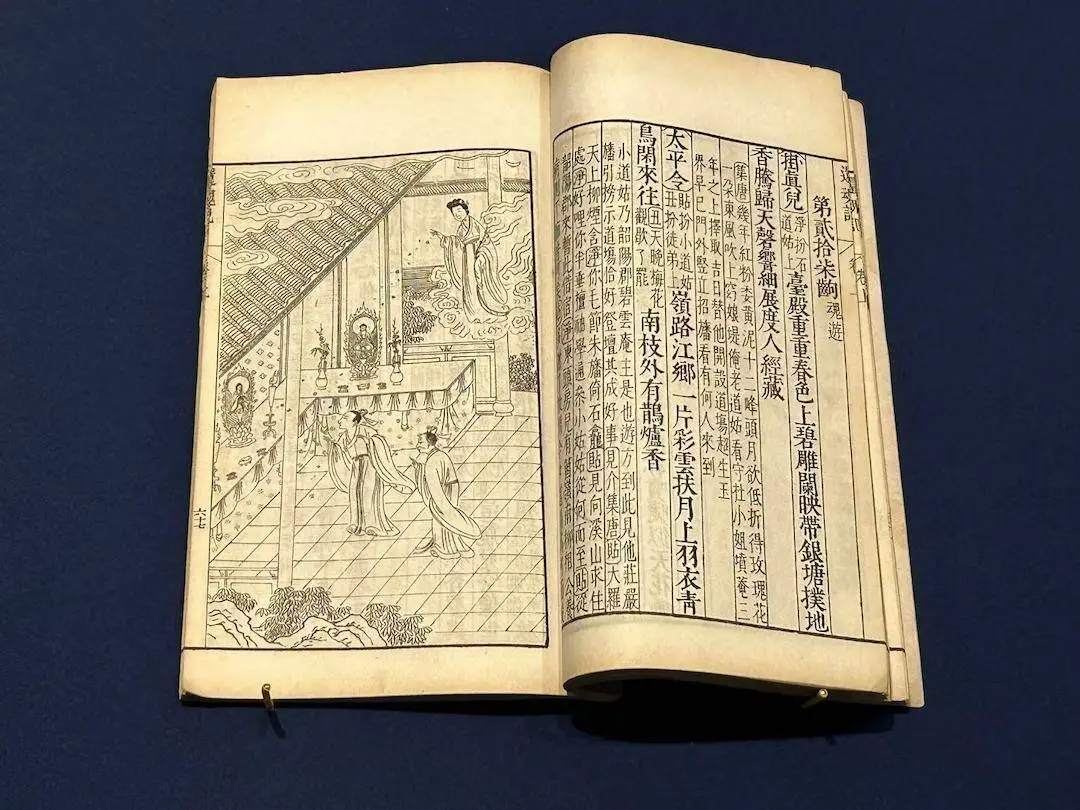 第貳拾柒齣 魂遊
掛眞兒 淨扮石道姑上 臺殿重重春色上碧雕闌映帶銀塘撲地
香騰歸天磬響細展度人經藏
集唐幾年紅粉委黃泥十二峰頭月欲低折得玫瑰花
一朶東風吹上窈娘堤俺老道姑看守杜小姐墳菴三
年之上擇取吉日替他開設道塲超生玉
界早已門外竪立招旛看有何人來到
太平令 貼扮小道姑丑扮徒弟上 嶺路江鄉一片彩雲扶月上羽衣靑
鳥閑來往 丑天晚梅花觀歇了罷 南枝外有鵲爐香
小道姑乃韶陽郡碧雲庵主是也遊方到此見他莊嚴
旛引撈示道塲恰好登壇其成好事見介集唐貼大羅
天上柳煙含淨你毛節朱旛倚石龕貼見向溪山求住
處淨好哩你半垂檀袖學通叅小姑姑從何而至貼從
韶陽郡來暫此借宿淨東頭房兒有箇嶺南柳相公養
六七